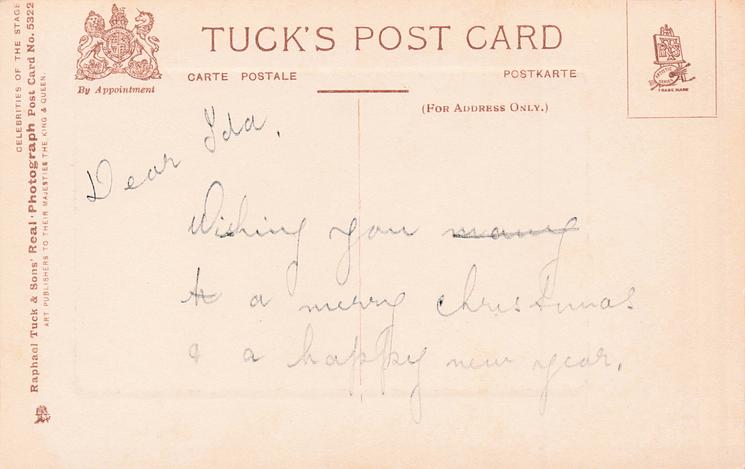 TUCK'S POST CARD
CARTE POSTALE
POSTKARTE
By Appointment
(FOR ADDRESS ONLY.)
CELEBRITIES OF THE STAGE
Raphael Tuck & Sons' Real Photograph Post Card No. 5322
ART PUBLISHERS TO THEIR MAJESTIES THE KING & QUEEN.
TRADE MARK
Dear Ida,
Wishing you many
a merry christmas
& a happy new year.